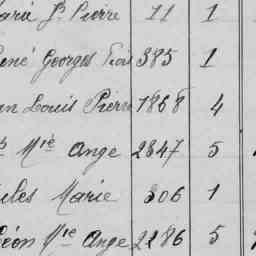 Marie Pre Pierre 11 1
René Georges Frois 385 1
Jean Louis Pierre 1868 4
Mie Ange 2847 5
Jules Marie 306 1
Léon Mie Ange 2286 5